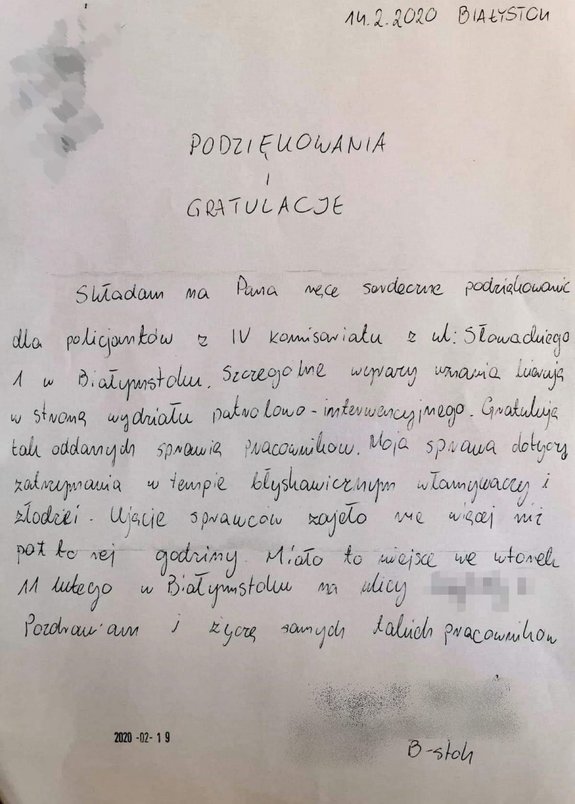 14.2.2020 BIAŁYSTOK
PODZIĘKOWANIA
i
GRATULACJE
Składam na Pana ręce serdeczne podziękowanie
dla policjantów z IV komisariatu z ul: Słowackiego
1 w Białymstoku. Szczegolne wyrazy uznania kieruję
w stronę wydziału patrolowo-interwencyjnego. Gratuluję
tak oddanych sprawie pracowników. Moja sprawa dotyczy
zatrzymania w tempie błyskawicznym włamywaczy i
złodziei. Ujęcie sprawców zajęło nie więcej niż
pół to rej godziny. Miało to miejsce we wtorek
11 lutego w Białymstoku na ulicy
Pozdrawiam i życzę samych takich pracowników
2020-02-19
B-stok